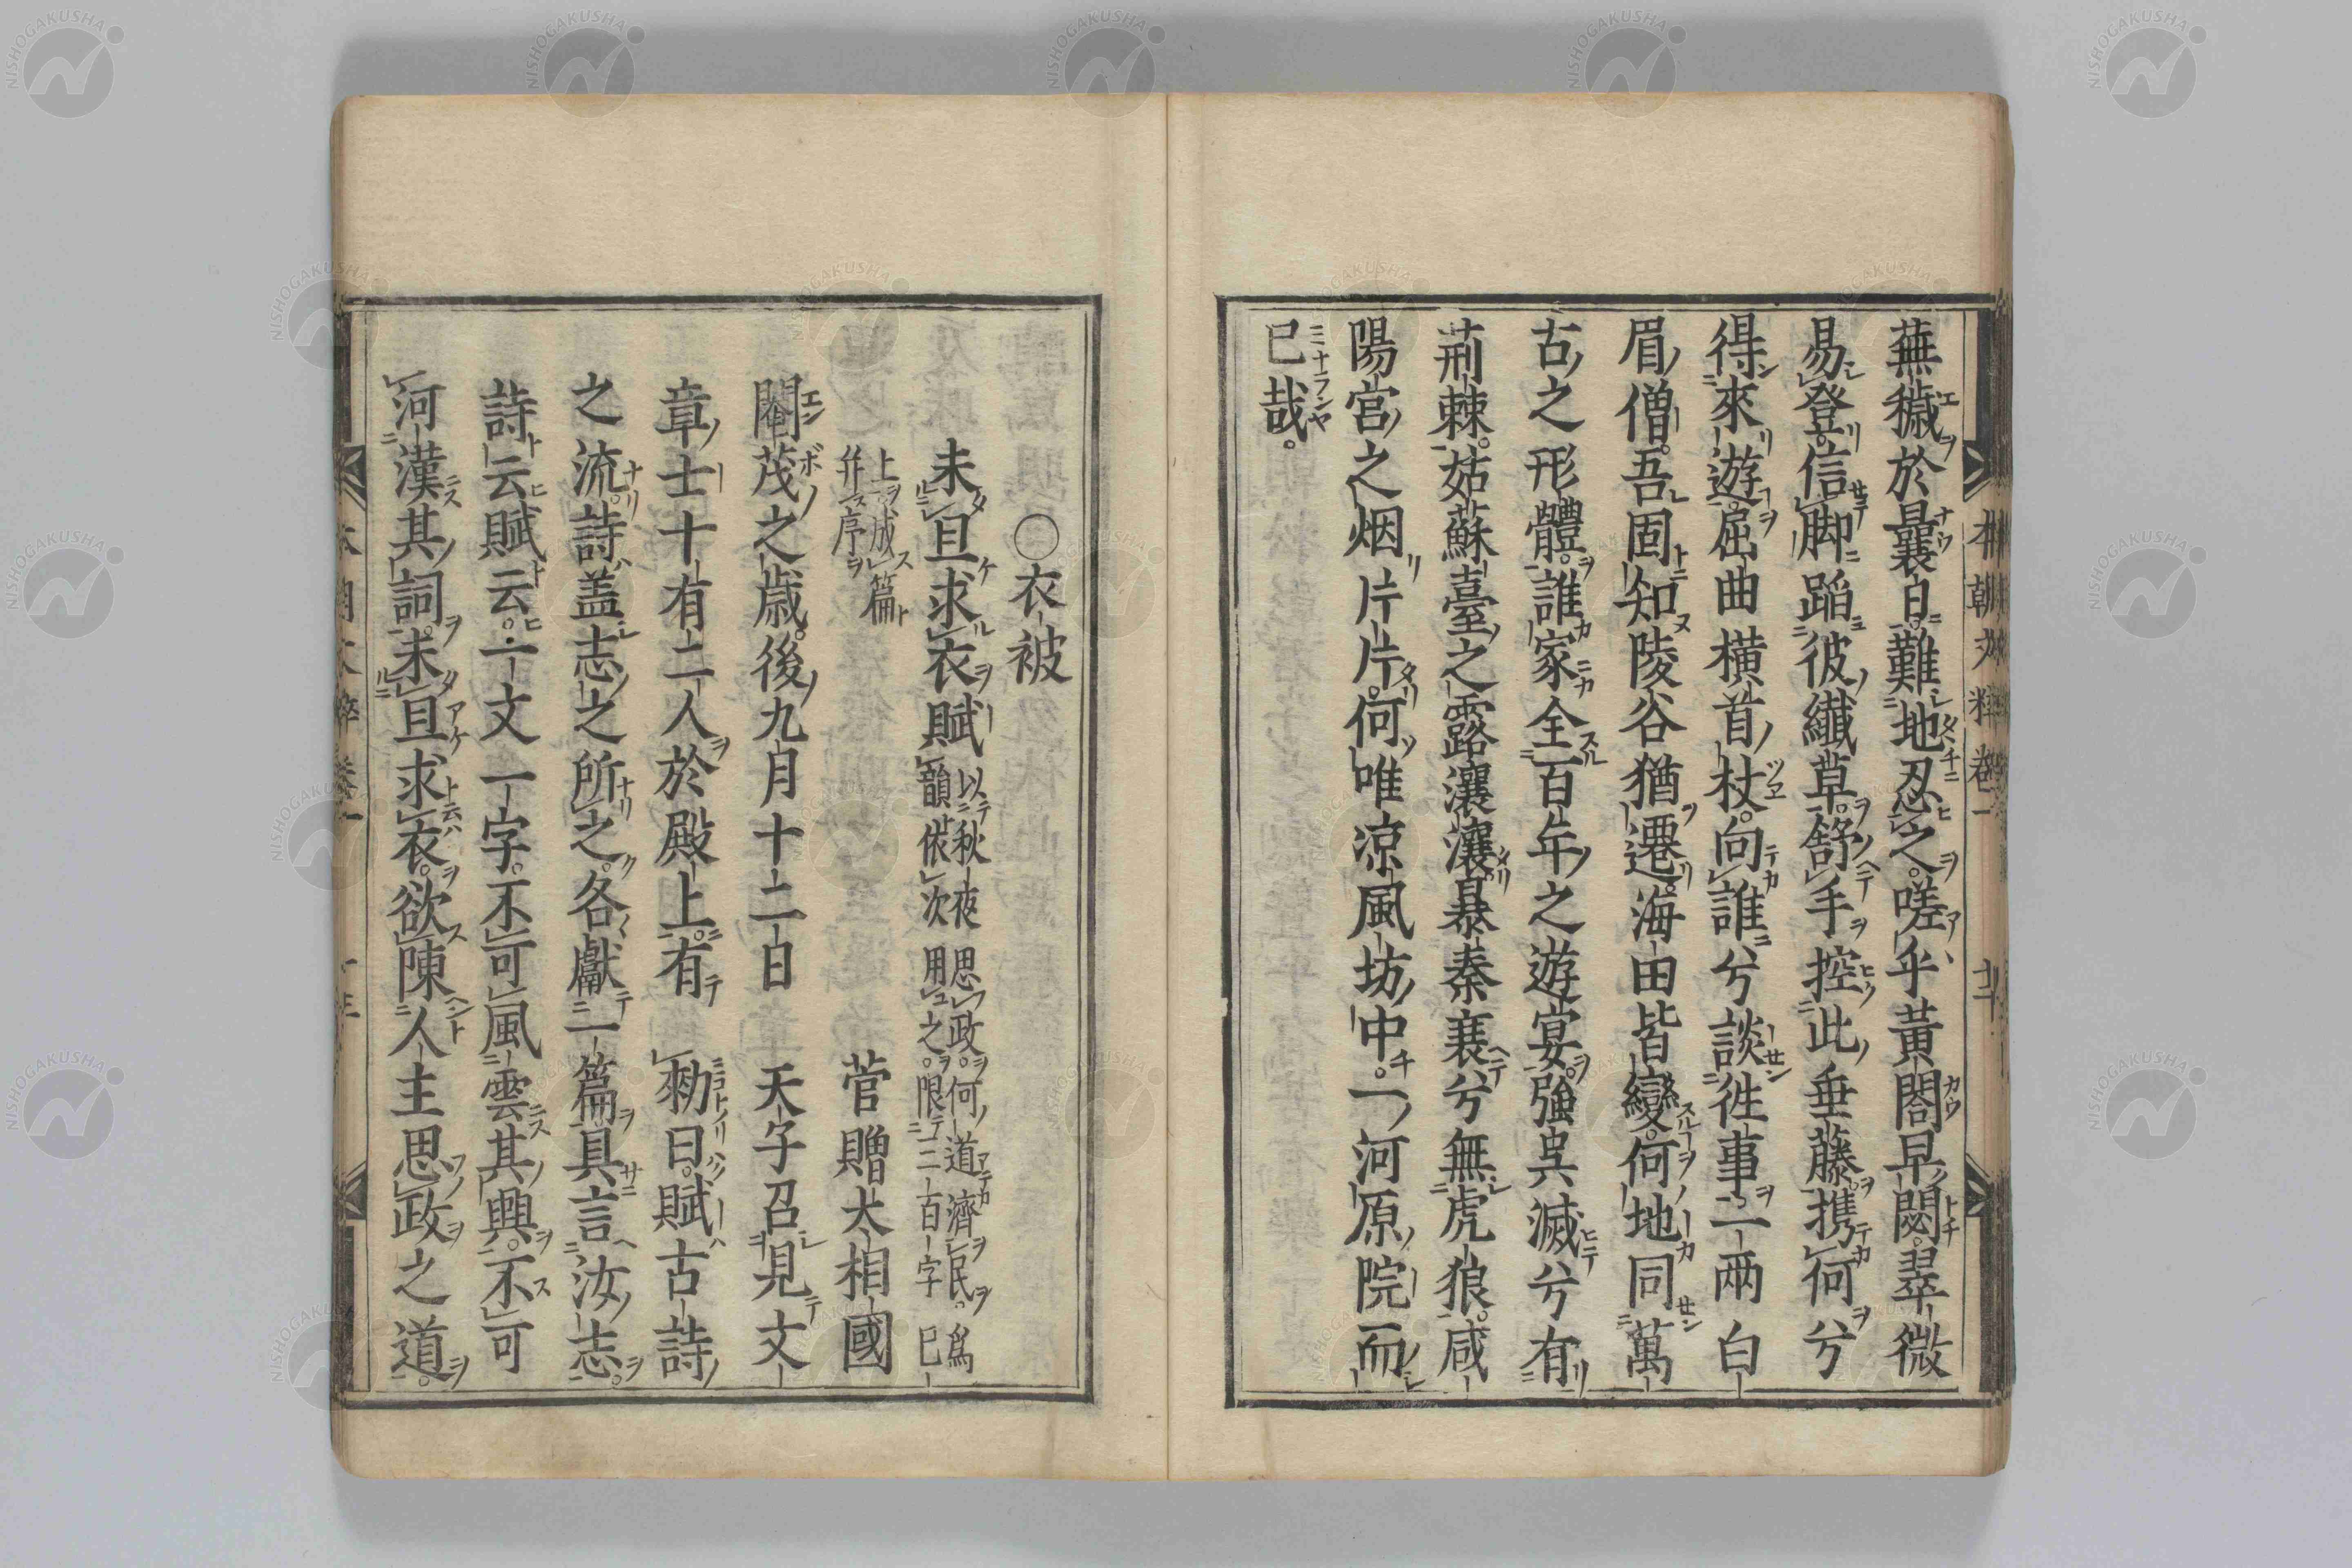 蕪穢於曩日。難地忍之。嗟乎黃閤早閟。翠微
易登。信脚蹈彼纎草。舒手控此垂藤。携何兮
得來遊。屈曲橫首杖。向誰兮談徃事。一兩白
眉僧。吾固知陵谷猶遷。海田皆變。何地同萬
古之形體。誰家全百年之遊宴。強吳滅兮有
荊棘。姑蘇臺之露瀼瀼。暴秦衰兮無虎狼。咸
陽宮之烟片片。何唯涼風坊中。一河原院而
已哉。
本朝文粹卷一
○衣被
未且求衣賦 以秋夜思政。何道濟民。爲韻依次用之。限二百字已上成篇幷序
菅贈大相國
閹茂之歲。後九月十二日 天子召見文
章士十有二人於殿上。有 勑曰。賦古詩
之流。詩蓋志之所之。各獻一篇具言汝志。
詩云賦云。一文一字。不可風雲其興。不可
河漢其詞。未且求衣。欲陳人主思政之道。